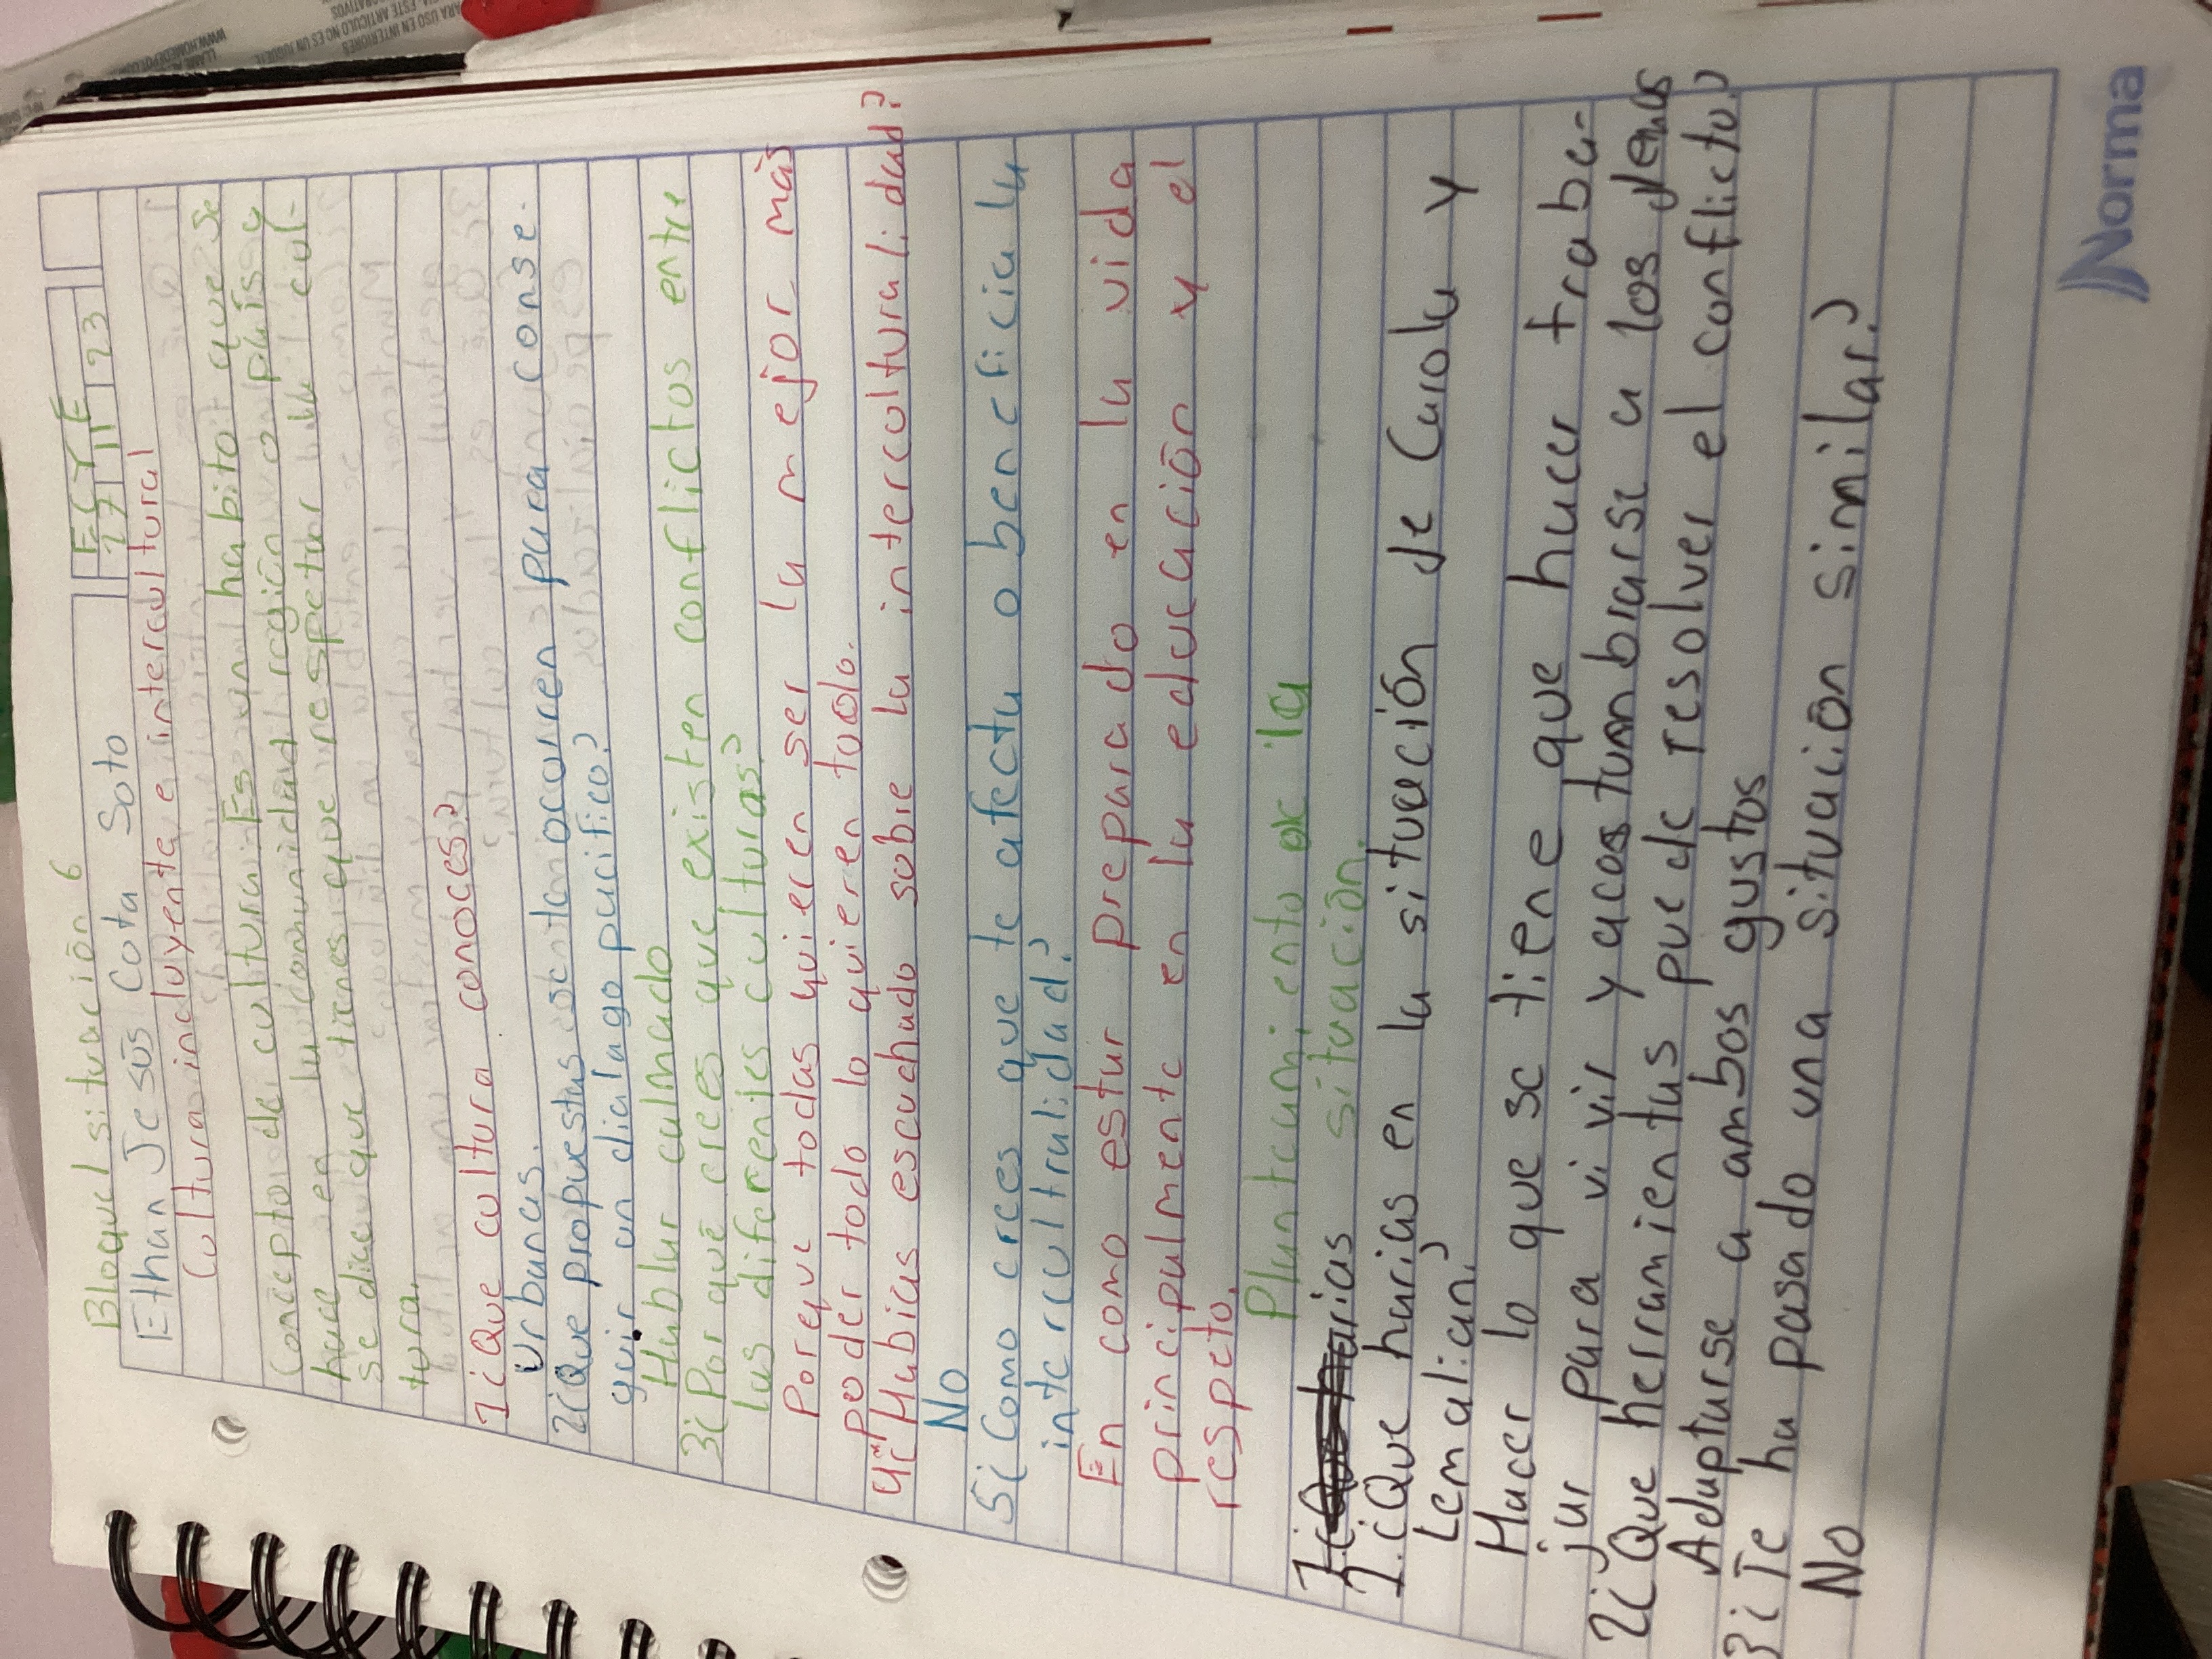 Bloque 1 situación 6
FCYE
Ethan Jesús Cota Soto
27 11 23
Cultura incluyente e intercultural
Concepto de cultura: Es un habito que se
hace en la comunidad región o país y
se dice que tienes que respetar la cul-
tura.
1¿Que cultura conoces?
Urbanas.
2¿Que propuestas ocurren para conse-
guir un dialago pacifico?
Hablar calmado
3¿Por qué crees que existen conflictos entre
las diferentes culturas?
Poreque todas quieren ser la mejor más
poder todo lo quieren todo.
4¿Habias escuchado sobre la interculturalidad?
No
5¿Como crees que te afecta o beneficia la
intercultralidad?
En como estar preparado en la vida
principalmente en la educación y el
respeto.
Planteamiento de la
situación.
1.¿Que harias en la situación de Carola y
Lemalian?
Hacer lo que se tiene que hacer traba-
jar para vivir y acostumbrarse a los demas
2¿Que herramientas puede resolver el conflicto?
Adapturse a ambos gustos
3¿Te ha pasado una situación similar?
No
Norma
WWW.HOMEDEPOT.COM